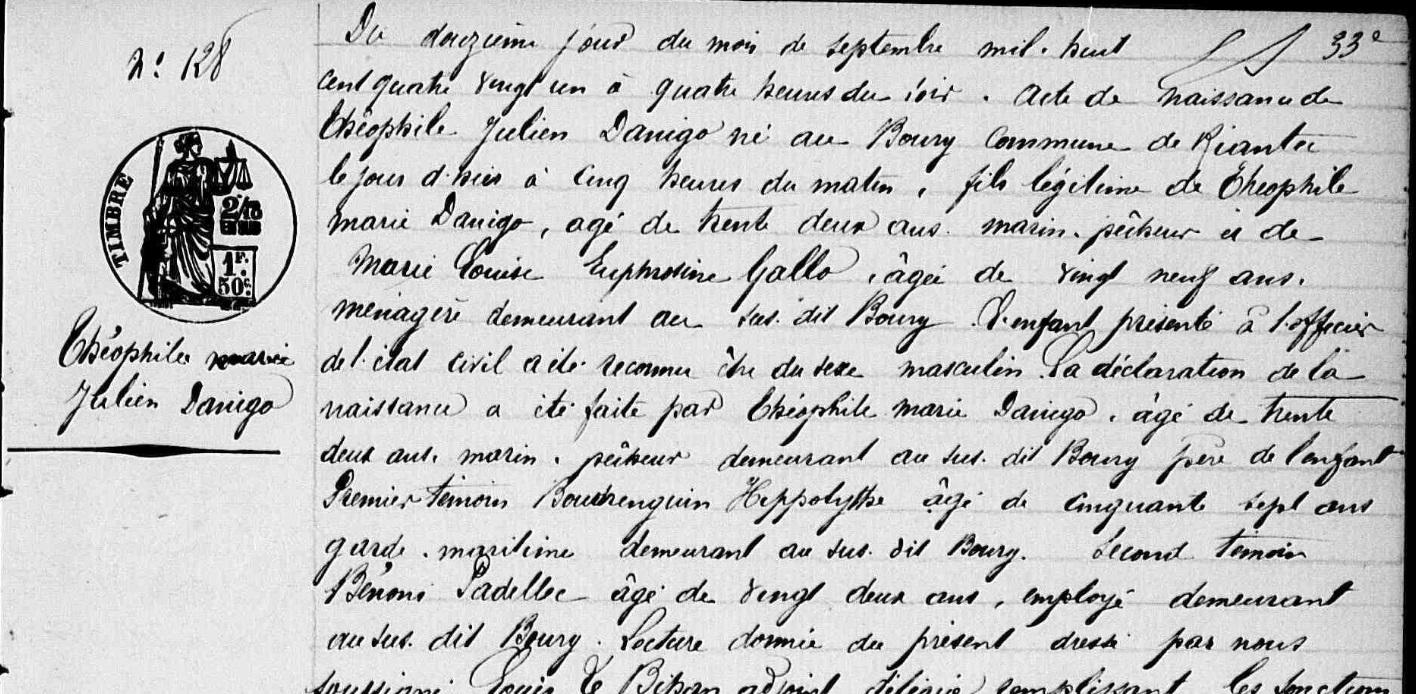 N: 128
TIMBRE
2/10
EN SUS
1F.
50c.
Théophile marie
Julien Danigo
33e
Du douzième jour du mois de septembre mil. huit
cent quatre vingt un à quatre heures du soir. Acte de naissance de
Théophile Julien Danigo né au Bourg Commune de Riantec
le jour d'hier à cinq heures du matin, fils légitime de Théophile
marie Danigo, agé de trente deux ans. marin. pêcheur et de
Marie Louise Euphrosine Gallo, âgée de vingt neuf ans.
ménagère demeurant au sus. dit Bourg. L'enfant présenté à l'officier
de l'état civil a été reconnu être du sexe masculin. La déclaration de la
naissance a été faite par Théophile marie Danigo, âgé de trente
deux ans. marin. pêcheur demeurant au sus. dit Bourg père de l'enfant
Premier témoin Hippolythe âgé de cinquante sept ans
garde. maritime demeurant au sus. dit Bourg. Second témoin
Bénoni Padellec âgé de vingt deux ans, employé demeurant
au sus. dit Bourg. Lecture donnée du présent dressé par nous
soussigné Louis adjoint délégué remplissant les fonctions